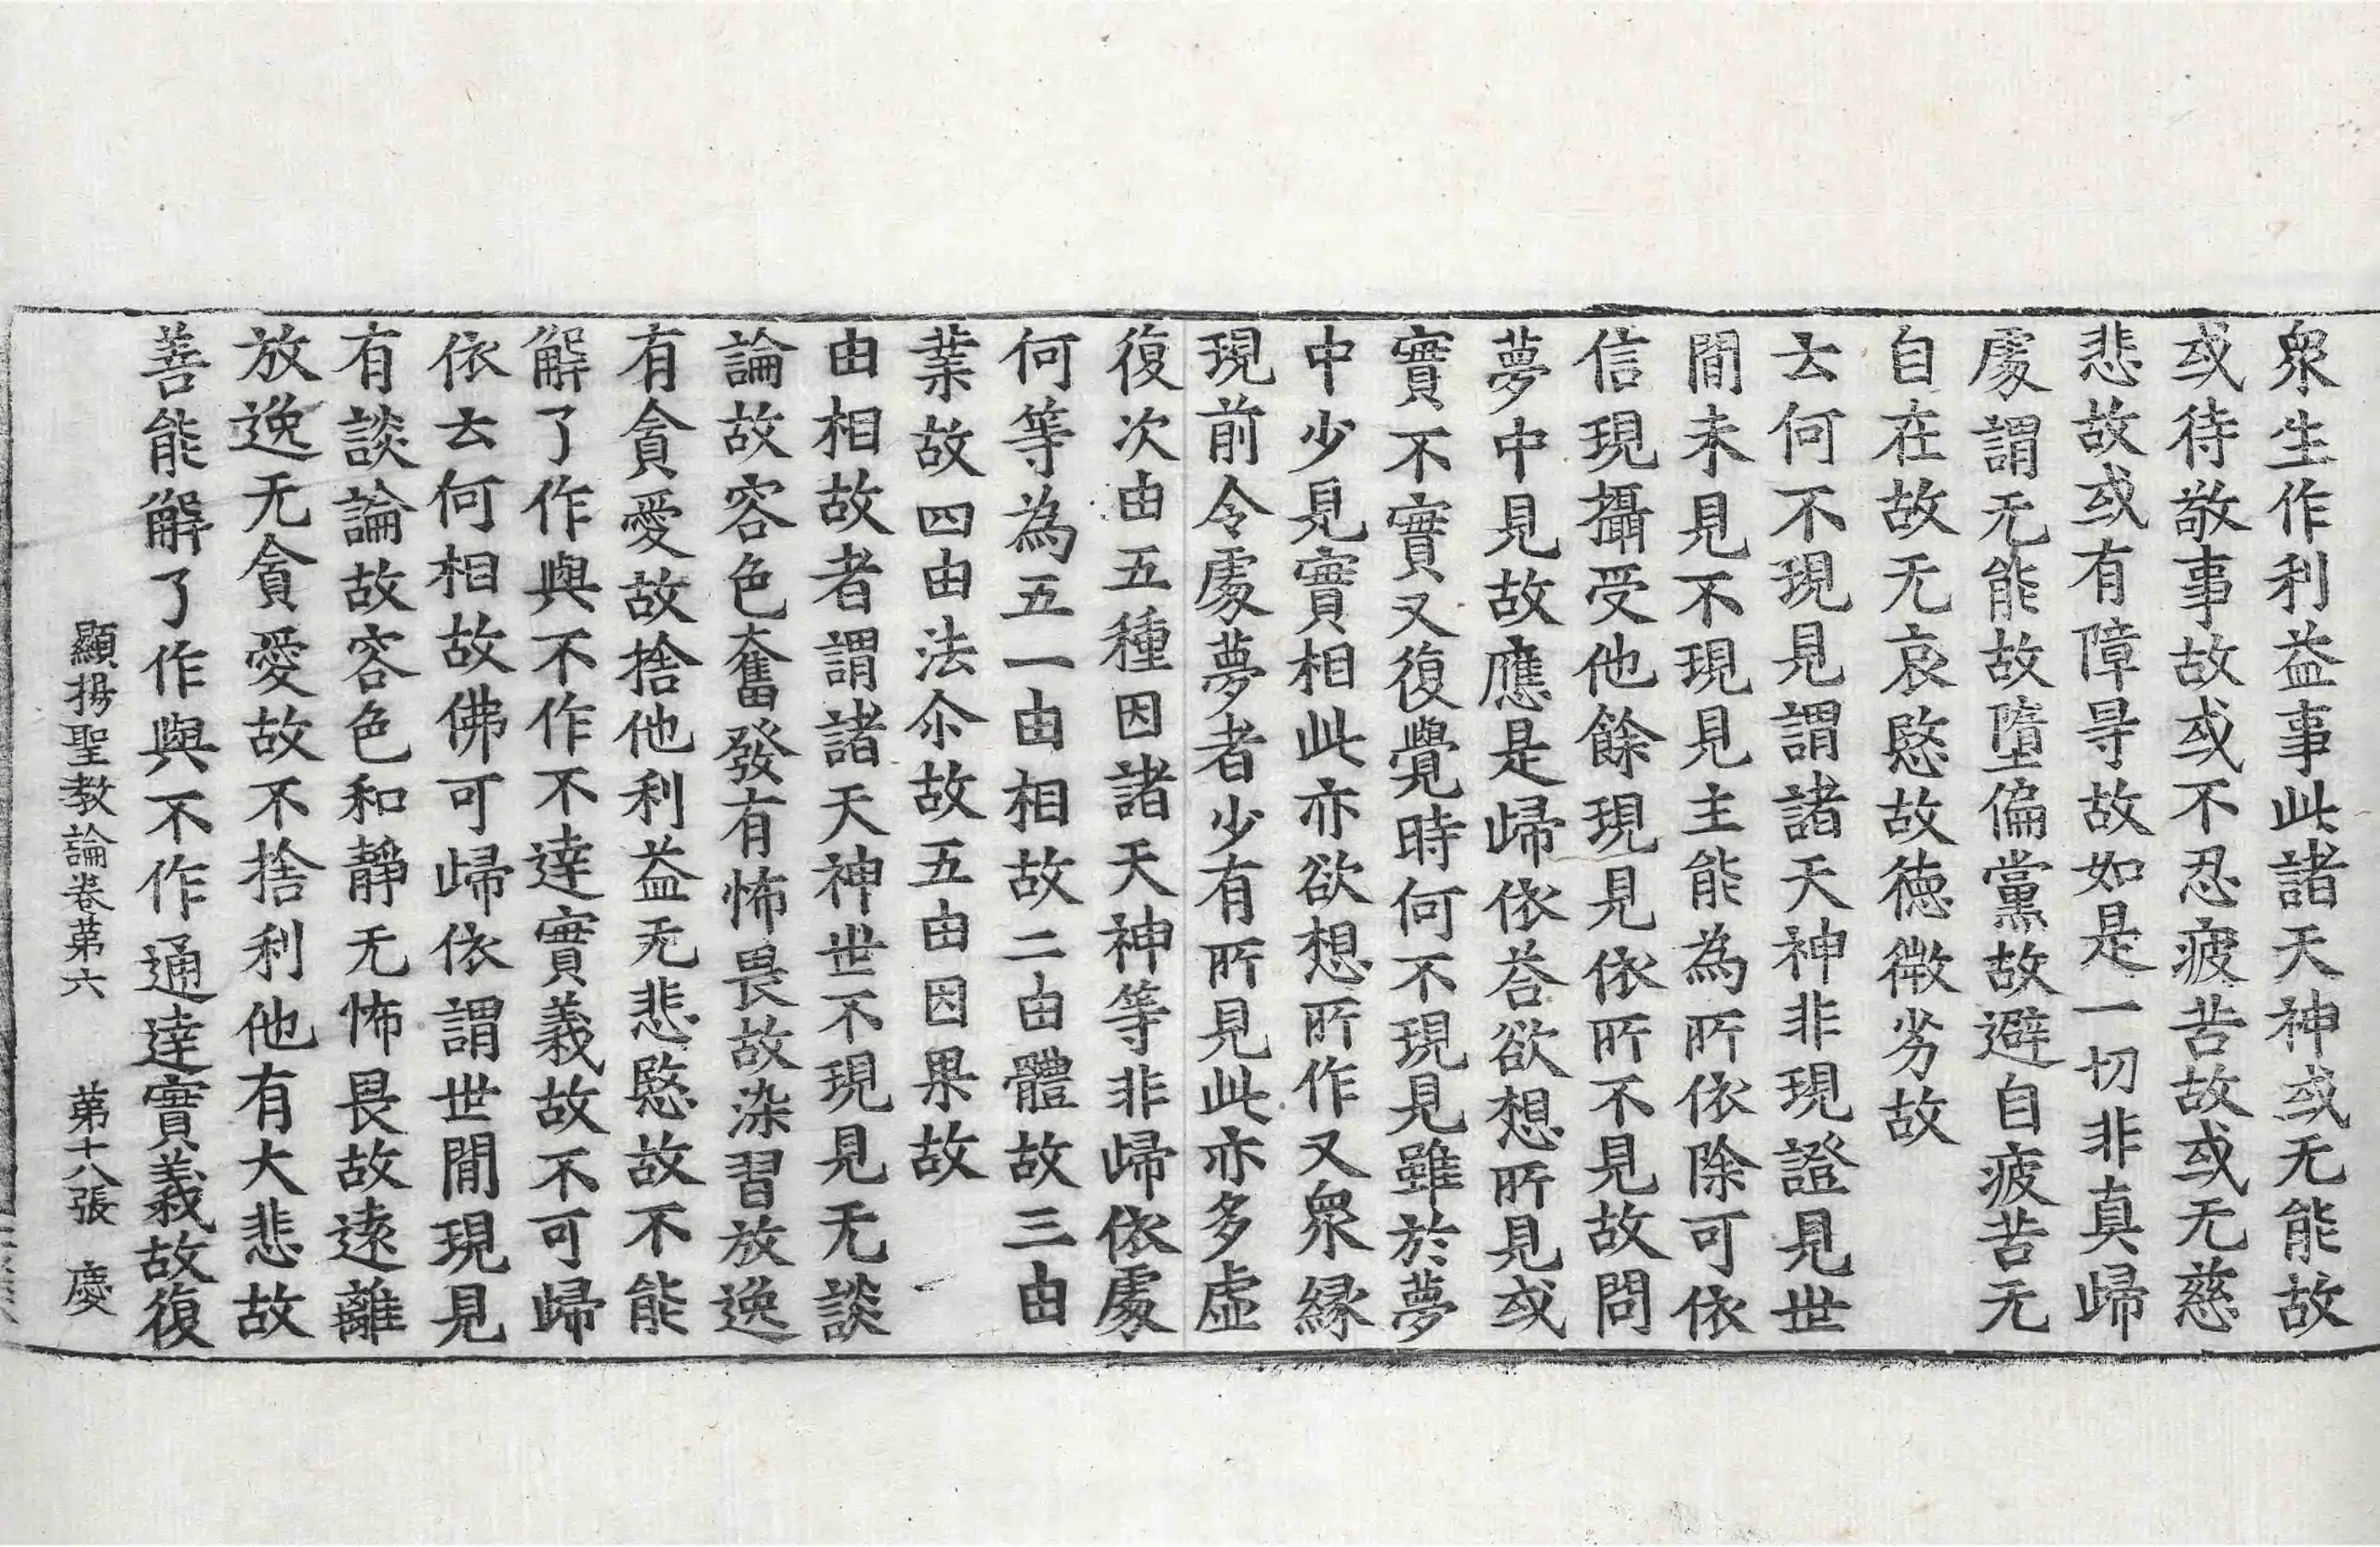 衆生作利益事此諸天神或无能故
或待敬事故或不忍疲苦故或无慈
悲故或有障㝵故如是一切非真歸
處謂无能故墮偏黨故避自疲苦无
自在故无哀愍故德微劣故
云何不現見謂諸天神非現證見世
間未見不現見主能為所依除可依
信現攝受他餘現見依所不見故問
夢中見故應是歸依荅欲想所見或
實不實又復覺時何不現見雖於夢
中少見實相此亦欲想所作又衆緣
現前令處夢者少有所見此亦多虛
復次由五種因諸天神等非歸依處
何等為五一由相故二由體故三由
業故四由法尒故五由因果故
由相故者謂諸天神世不現見无談
論故容色奮發有怖畏故染習放逸
有貪愛故捨他利益无悲愍故不能
解了作與不作不達實義故不可歸
依云何相故佛可歸依謂世間現見
有談論故容色和靜无怖畏故遠離
放逸无貪愛故不捨利他有大悲故
善能解了作與不作通達實義故復
顯揚聖教論卷第六 第十八張 慶